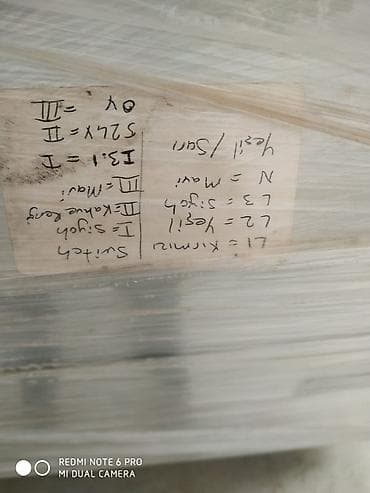 L1 = Kırmızı
L2 = Yeşil
L3 = Siyah
N = Mavi
Yeşil / Sarı
Switch
I = Siyah
II = Kahve Rengi
III = Mavi
I3.1 = I
S24V = II
0V = III
REDMI NOTE 6 PRO
MI DUAL CAMERA